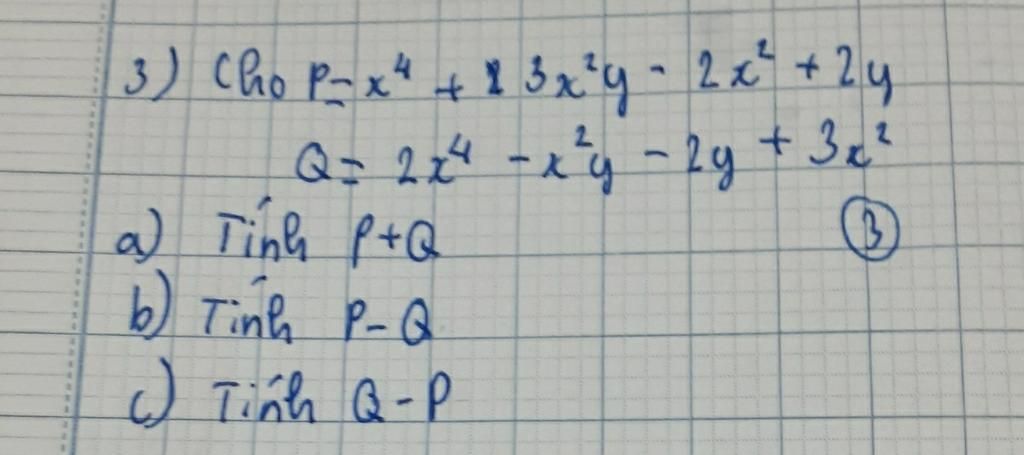 3) Cho P = x⁴ + 3x²y - 2x² + 2y
Q = 2x⁴ - x²y - 2y + 3x²
a) Tính P+Q
③
b) Tính P-Q
c) Tính Q-P